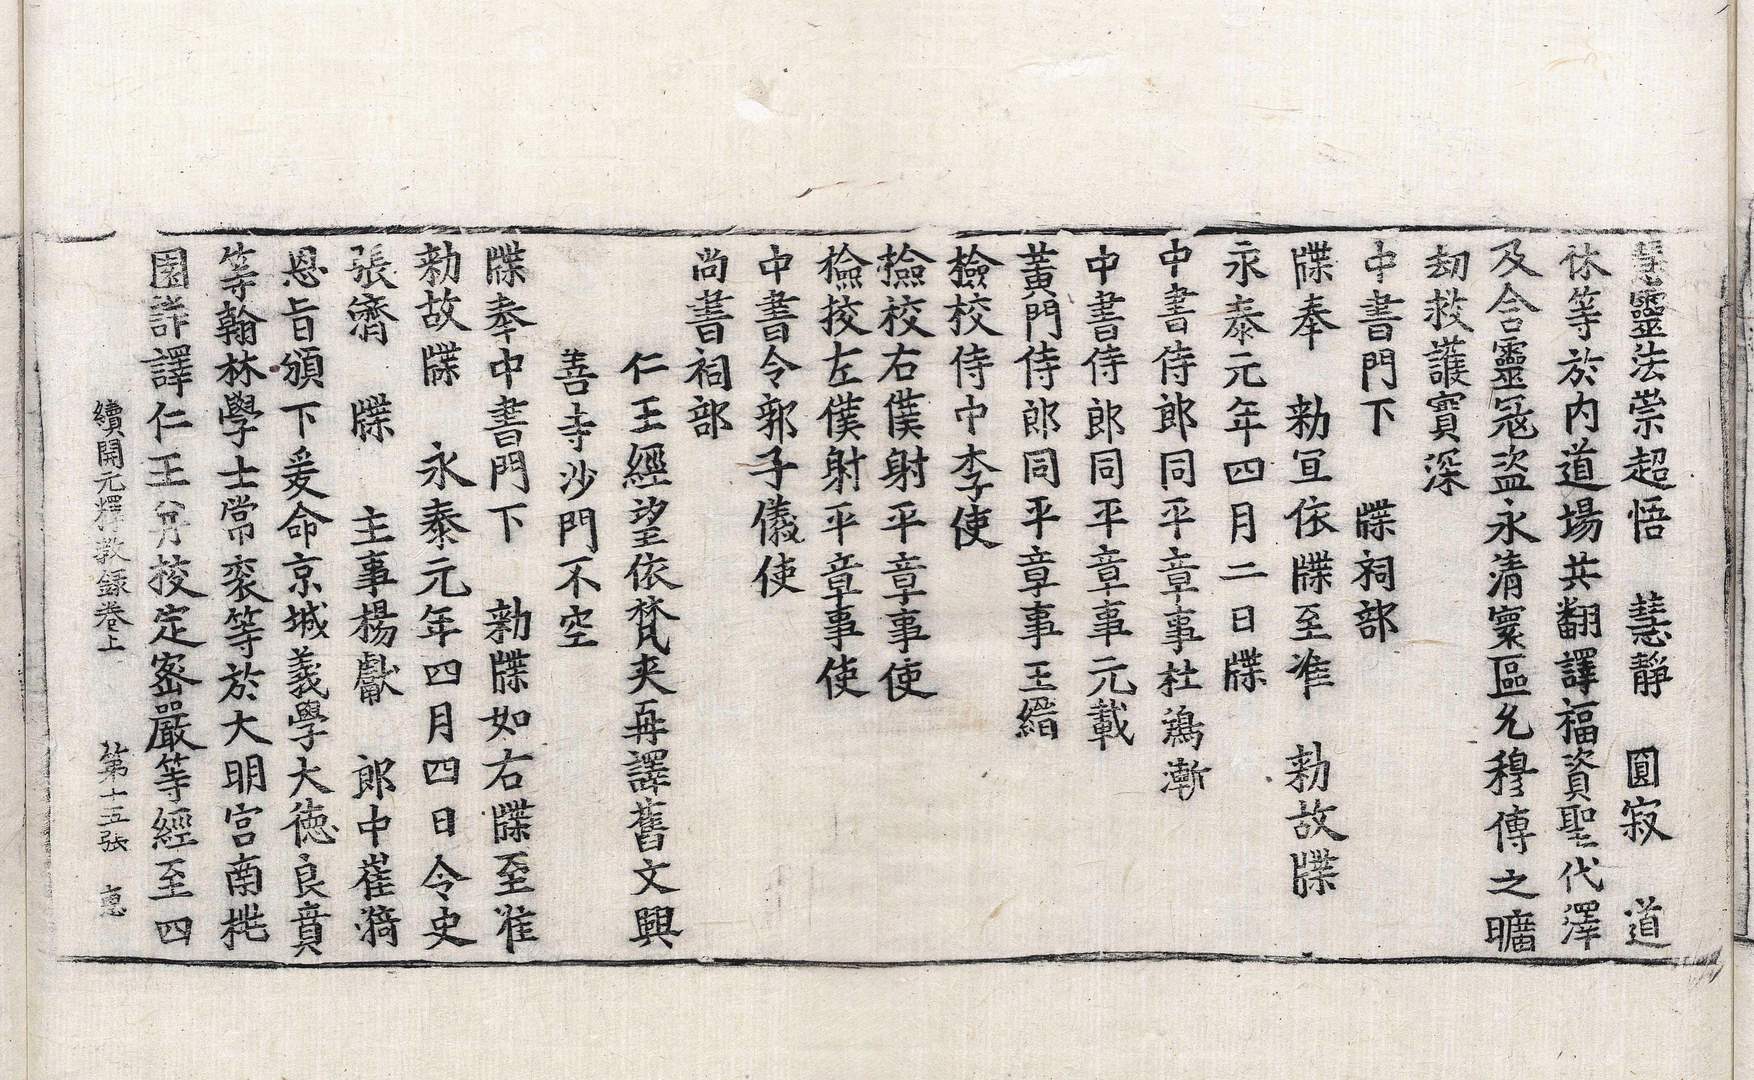 慧靈法崇超悟　慧靜　圓寂　道
休等於內道場共翻譯福資聖代澤
及含靈冦盜永清寰區允穆傳之曠
劫救護實深
中書門下　牒祠部
牒奉　勑宣依牒至准　勑故牒
永泰元年四月二日牒
中書侍郎同平章事杜鴻漸
中書侍郎同平章事元載
黃門侍郎同平章事王縉
撿校侍中李使
撿校右僕射平章事使
撿挍左僕射平章事使
中書令郭子儀使
尚書祠部
仁王經望依梵夾再譯舊文興
善寺沙門不空
牒奉中書門下　勑牒如右牒至准
勑故牒　永泰元年四月四日令史
張濟　牒　主事楊獻　郎中崔漪
恩旨頒下爰命京城義學大德良賁
等翰林學士常袞等於大明宮南桃
園詳譯仁王并挍定密嚴等經至四
續開元釋教錄卷上　第十五張　惠